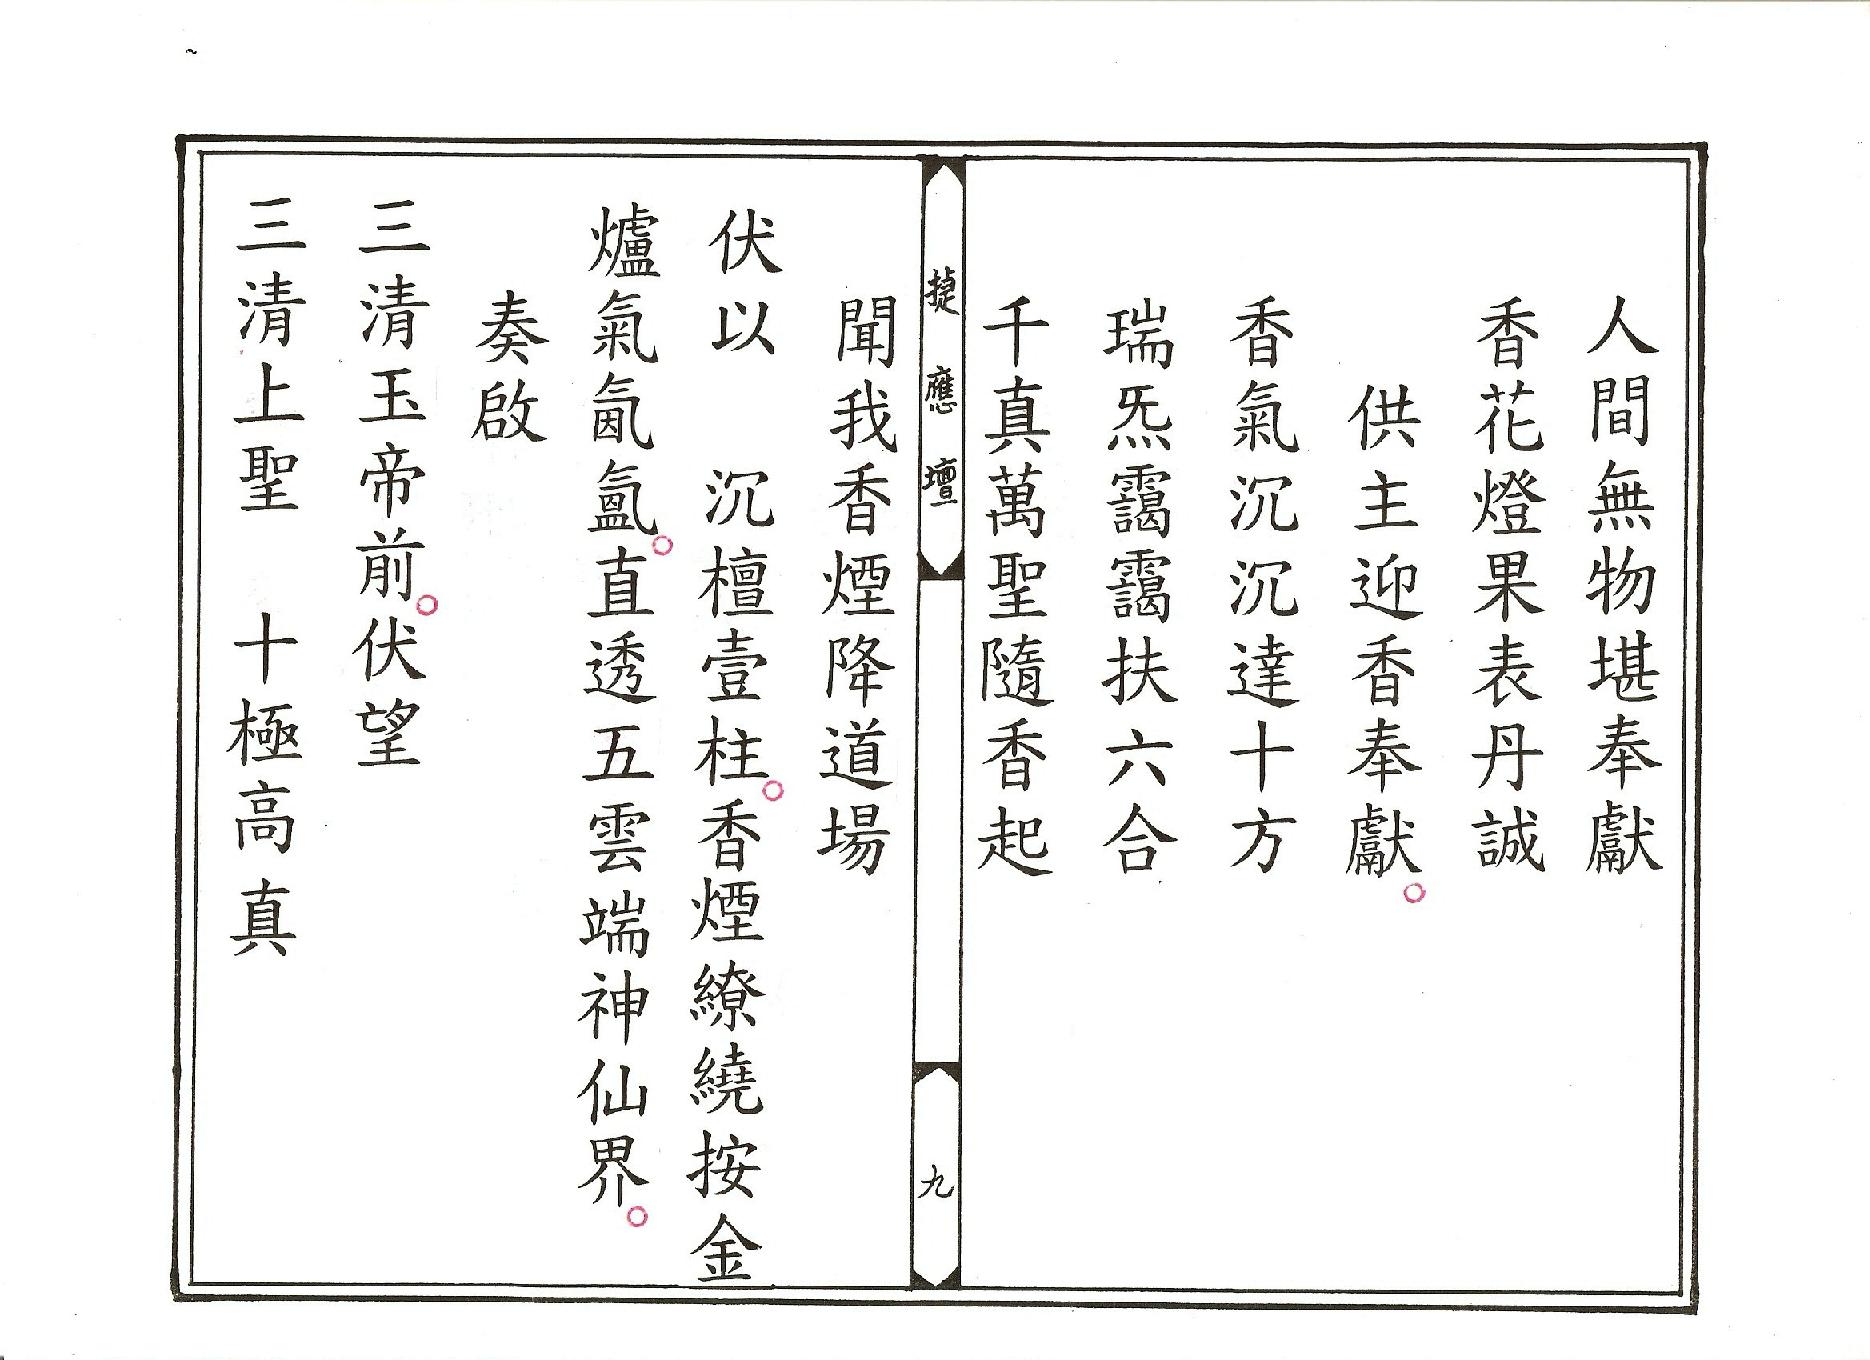 人間無物堪奉獻
香花燈果表丹誠
供主迎香奉獻。
香氣沉沉達十方
瑞炁靄靄扶六合
千真萬聖隨香起
捷應壇
九
聞我香煙降道場
伏以　沉檀壹柱。香煙繚繞按金
爐氣氤氳。直透五雲端神仙界。
奏啟
三清玉帝前。伏望
三清上聖　十極高真